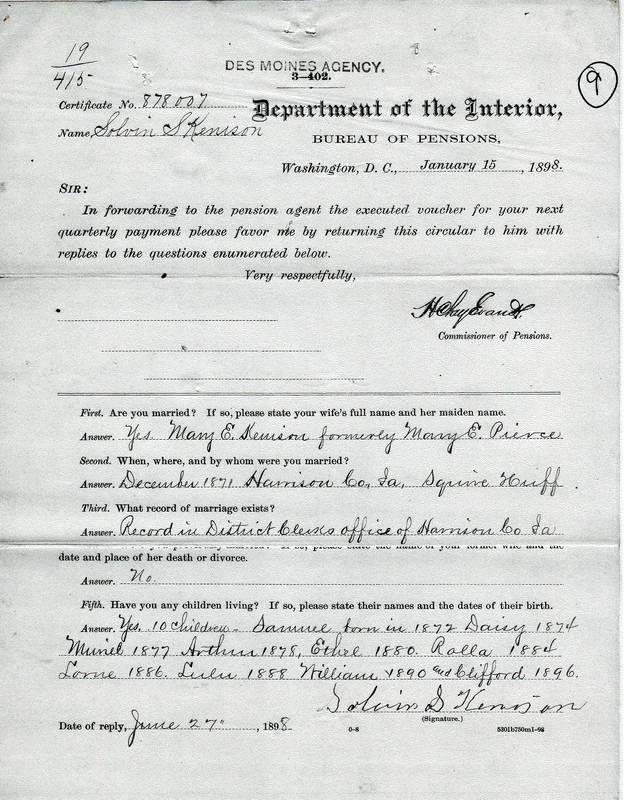 19
415
DES MOINES AGENCY.
3-402.
9
Certificate No. 878007
Department of the Interior,
Name, Solvin S Kenison
BUREAU OF PENSIONS,
Washington, D. C., January 15, 1898.
SIR:
In forwarding to the pension agent the executed voucher for your next
quarterly payment please favor me by returning this circular to him with
replies to the questions enumerated below.
Very respectfully,
H Clay Evans
Commissioner of Pensions.
First. Are you married? If so, please state your wife's full name and her maiden name.
Answer. Yes. Mary E. Kenison formerly Mary E. Pierce
Second. When, where, and by whom were you married?
Answer. December 1871 Harrison Co., Ia, Squire Huff.
Third. What record of marriage exists?
Answer. Record in District Clerks office of Harrison Co Ia
If so, please state the name of your former wife and the
date and place of her death or divorce.
Answer. No.
Fifth. Have you any children living? If so, please state their names and the dates of their birth.
Answer. Yes. 10 children - Samuel born in 1872 Daisy 1874
Muriel 1877 Arthur 1878, Ethel 1880. Rolla 1884
Lorne 1886. Lulu 1888 William 1890 and Clifford 1896.
Solvin S Kenison
(Signature.)
Date of reply, June 27", 1898
0-8
5301b750m1-98